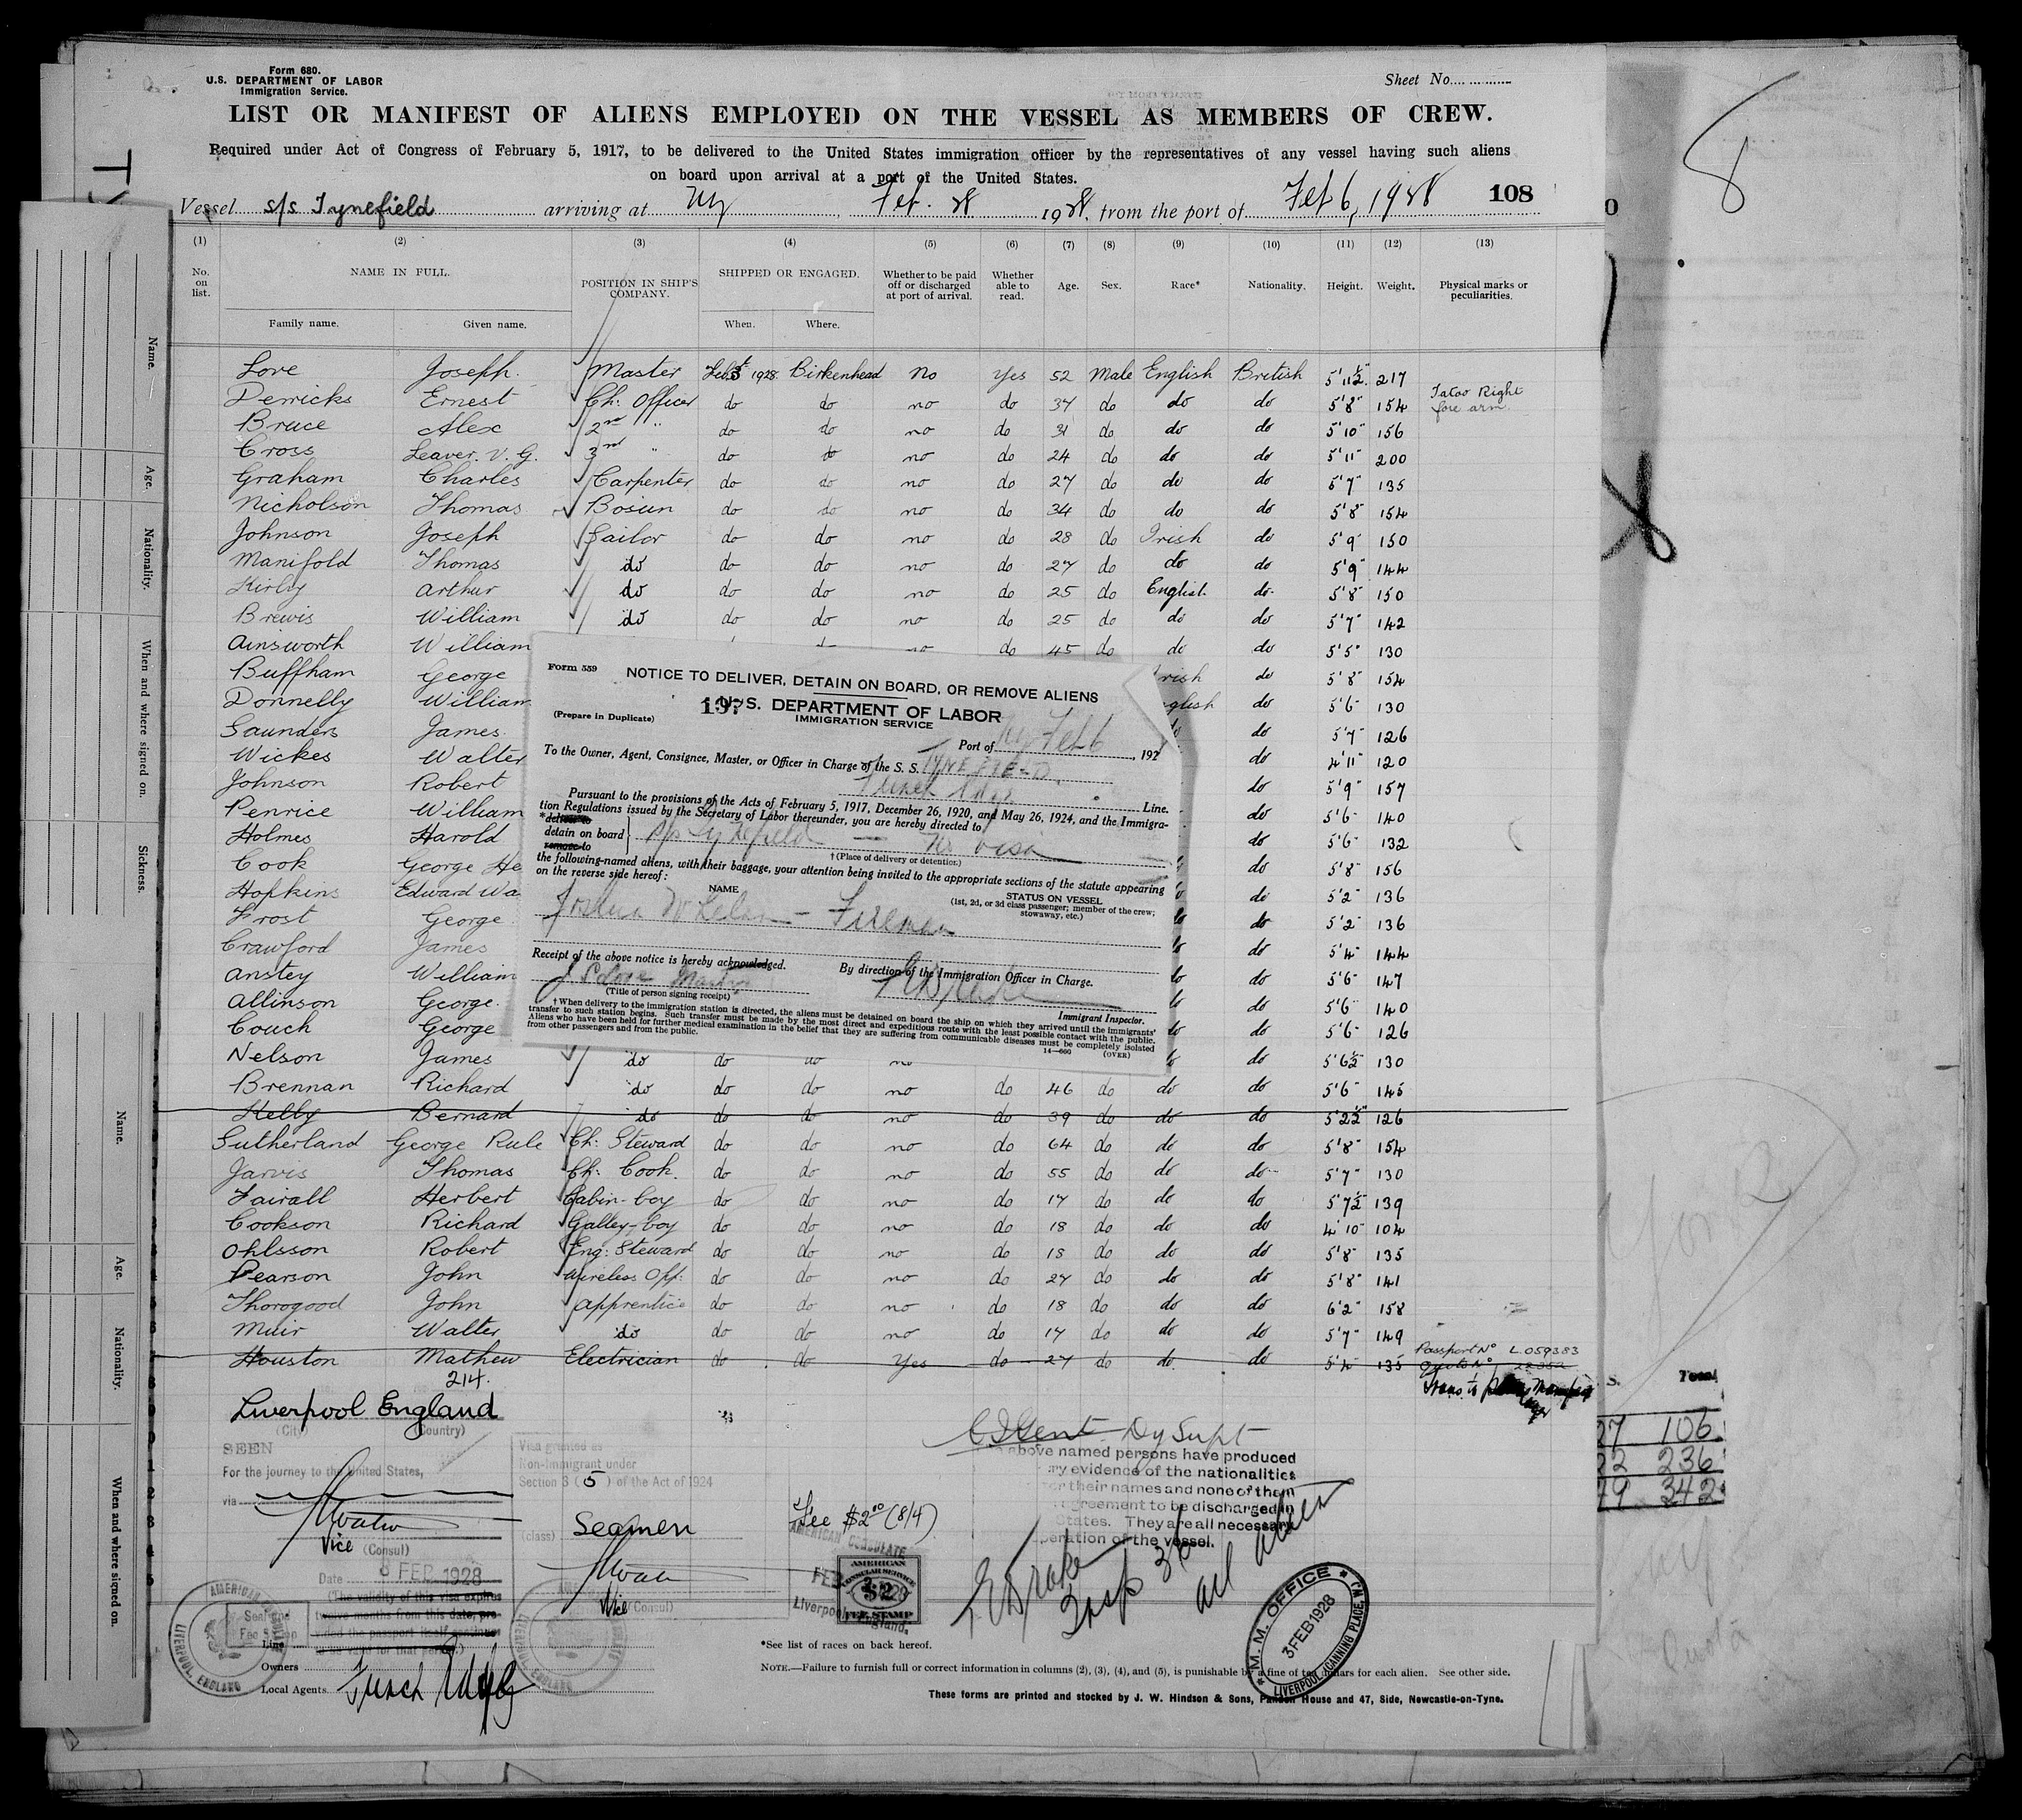 Form 680.
U.S. DEPARTMENT OF LABOR
Immigration Service.
Sheet No.
LIST OR MANIFEST OF ALIENS EMPLOYED ON THE VESSEL AS MEMBERS OF CREW.
Required under Act of Congress of February 5, 1917, to be delivered to the United States immigration officer by the representatives of any vessel having such aliens
on board upon arrival at a port of the United States.
Vessel s/s Tynefield arriving at Ny Feb. 28 1928, from the port of Feb 6, 1928 108
(1) (2) (3) (4) (5) (6) (7) (8) (9) (10) (11) (12) (13)
No. on list. NAME IN FULL. POSITION IN SHIP'S COMPANY. SHIPPED OR ENGAGED. Whether to be paid off or discharged at port of arrival. Whether able to read. Age. Sex. Race* Nationality. Height. Weight. Physical marks or peculiarities.
Family name. Given name. When. Where.
Love Joseph. Master Feb 3 1928 Birkenhead No Yes 52 Male English British 5'11½ 217
Derricks Ernest Ch: Officer do do no do 37 do do do 5'8" 154 Tatoo Right fore arm.
Bruce Alex 2nd " do do no do 31 do do do 5'10" 156
Cross Leaver. V. G. 3rd " do do no do 24 do do do 5'11" 200
Graham Charles Carpenter do do no do 27 do do do 5'7" 135
Nicholson Thomas Bosun do do no do 34 do do do 5'8" 154
Johnson Joseph Sailor do do no do 28 do Irish do 5'9" 150
Manifold Thomas do do do no do 27 do do do 5'9" 144
Kirby Arthur do do do no do 25 do English. do 5'8" 150
Brewis William do do do no do 25 do do do 5'7" 142
Ainsworth William no do 45 do do do 5'5" 130
Buffham George do 5'8" 154
Donnelly William do 5'6" 130
Saunders James. do 5'7" 126
Wickes Walter do 4'11" 120
Johnson Robert do 5'9" 157
Penrice William do 5'6" 140
Holmes Harold do 5'6" 132
Cook George He do 5'8" 156
Hopkins Edward Wa do 5'2" 136
Frost George do 5'2" 136
Crawford James do 5'4" 144
Anstey William do 5'6" 147
Allinson George. do 5'6" 140
Couch George do 5'6" 126
Nelson James do do do no do 5'6½" 130
Brennan Richard do do do no do 46 do do do 5'6" 145
Kelly Bernard do do do no do 39 do do do 5'2½" 126
Sutherland George Rule Ch: Steward do do no do 64 do do do 5'8" 154
Jarvis Thomas Ch: Cook. do do no do 55 do do do 5'7" 130
Fairall Herbert Cabin-boy do do no do 17 do do do 5'7½" 139
Cookson Richard Galley-boy do do no do 18 do do do 4'10" 104
Ohlsson Robert Eng: Steward do do no do 18 do do do 5'8" 135
Pearson John Wireless Opp: do do no do 27 do do do 5'8" 141
Thorogood John apprentice do do no do 18 do do do 6'2" 158
Muir Walter do do do no do 17 do do do 5'7" 149
Houston Mathew Electrician do do Yes do 27 do do do 5'4" 135 Passport No L 059383
Quota No 22352
214.
Form 559
NOTICE TO DELIVER, DETAIN ON BOARD, OR REMOVE ALIENS
U.S. DEPARTMENT OF LABOR
IMMIGRATION SERVICE
(Prepare in Duplicate)
Port of Ny Feb 6, 192
To the Owner, Agent, Consignee, Master, or Officer in Charge of the S. S. TYNEFIELD
Line.
Pursuant to the provisions of the Acts of February 5, 1917, December 26, 1920, and May 26, 1924, and the Immigra-
tion Regulations issued by the Secretary of Labor thereunder, you are hereby directed to
*deliver to
detain on board S/s Tynefield — No visa
remove to
†(Place of delivery or detention.)
the following-named aliens, with their baggage, your attention being invited to the appropriate sections of the statute appearing
on the reverse side hereof:
NAME
STATUS ON VESSEL
(1st, 2d, or 3d class passenger; member of the crew; stowaway, etc.)
Joshua — Fireman
Receipt of the above notice is hereby acknowledged.
By direction of the Immigration Officer in Charge.
(Title of person signing receipt)
Immigrant Inspector.
†When delivery to the immigration station is directed, the aliens must be detained on board the ship on which they arrived until the immigrants'
transfer to such station begins. Such transfer must be made by the most direct and expeditious route with the least possible contact with the public.
Aliens who have been held for further medical examination in the belief that they are suffering from communicable diseases must be completely isolated
from other passengers and from the public.
14—660 (OVER)
Liverpool England
(City) (Country)
SEEN
For the journey to the United States,
via
Vice (Consul)
Date 3 FEB 1928
(The validity of this visa expires
twelve months from this date, pro-
vided the passport itself continues
to be valid for that period.)
Seal and
Fee Stamp
AMERICAN CONSULATE LIVERPOOL, ENGLAND
Visa granted as
Non-Immigrant under
Section 3 (5) of the Act of 1924
(class) Seamen
Vice (Consul)
Fee $2.00 (8/4)
AMERICAN CONSULATE
AMERICAN
CONSULAR SERVICE
$2
FEE STAMP
Liverpool, England.
Dy Supt
above named persons have produced
ry evidence of the nationalities
or their names and none of them
greement to be discharged in
States. They are all necessary
peration of the vessel.
M. M. OFFICE
3 FEB 1928
LIVERPOOL CANNING PLACE, 1
Line
Owners
Local Agents
*See list of races on back hereof.
NOTE.—Failure to furnish full or correct information in columns (2), (3), (4), and (5), is punishable by a fine of ten dollars for each alien. See other side.
These forms are printed and stocked by J. W. Hindson & Sons, Pandon House and 47, Side, Newcastle-on-Tyne.
Name.
Age.
Nationality.
When and where signed on.
Sickness.
Name.
Age.
Nationality.
When and where signed on.
8
S. Total
27 106
22 236
79 342